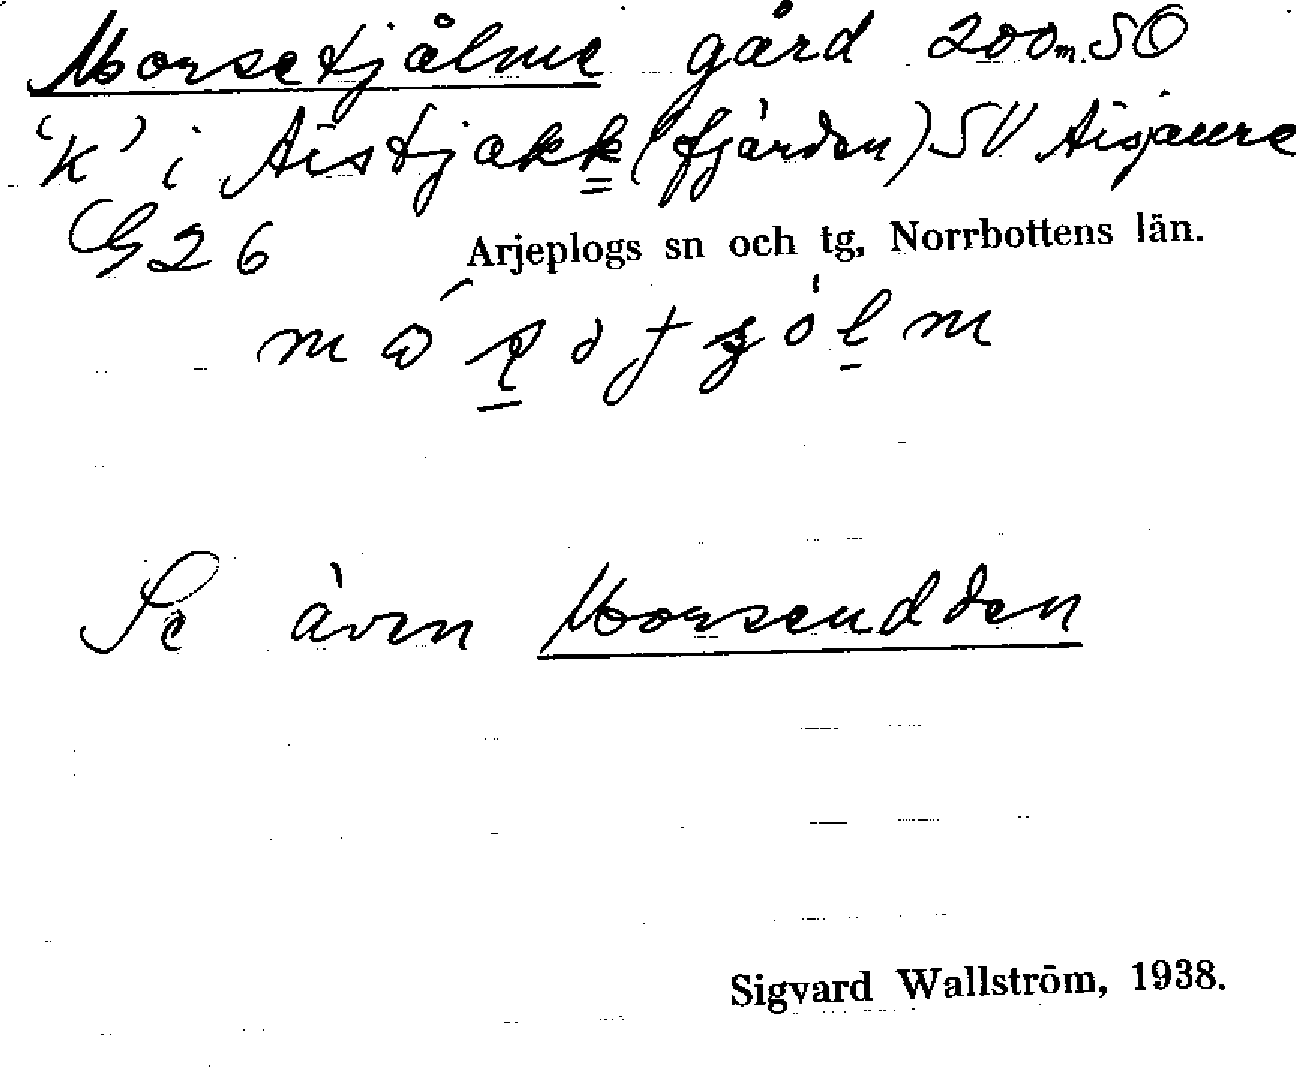 Morsetjålme gård 200 m. SO
'K' i Aistjakk (fjärden) SV Aisjaure
G 26
Arjeplogs sn och tg, Norrbottens län.
Se även Morseudden
Sigvard Wallström, 1938.